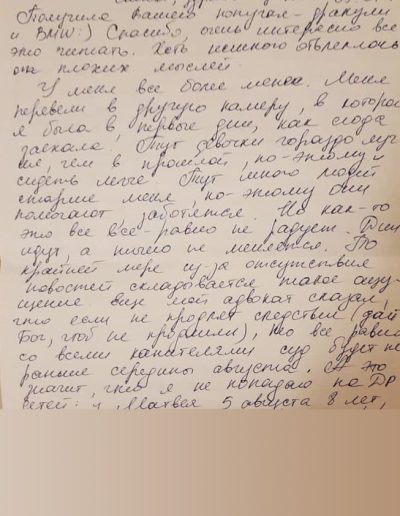 Получила Вашего попугая-дракулу
и BMW:) Спасибо, очень интересно все
это читать. Хоть немного отвлеклась
от плохих мыслей.
У меня все более менее. Меня
перевели в другую камеру, в которой
я была в первые дни, как сюда
заехала. Тут девочки гораздо луч
ше, чем в прошлой, по-этому и
сидеть легче. Тут много людей
старше меня, по-этому они
помогают, заботятся. Но как-то
это все все-равно не радует. Дни
идут, а ничего не меняется. По
крайней мере из-за отсутствия
новостей складывается такое ощу-
щение. Еще мой адвокат сказал,
что если не продлят следствие (дай
Бог, чтоб не продлили), то все равно
со всеми канителями суд будет не
раньше середины августа. А это
значит, что я не попадаю на ДР
детей: у Матвея 5 августа 8 лет,